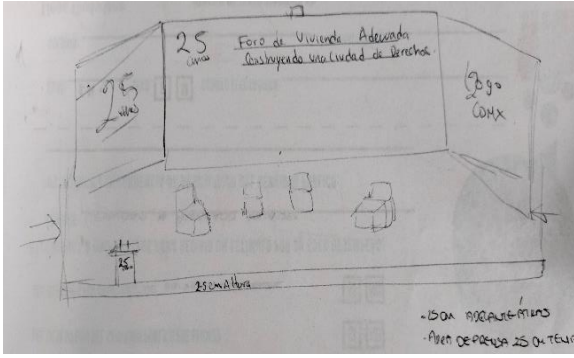 25
años
Foro de Vivienda Adecuada
Construyendo una Ciudad de Derechos.
25
años
Logo
CDMX
25
25 cm Altura
- AREA DE PRENSA 25 cm